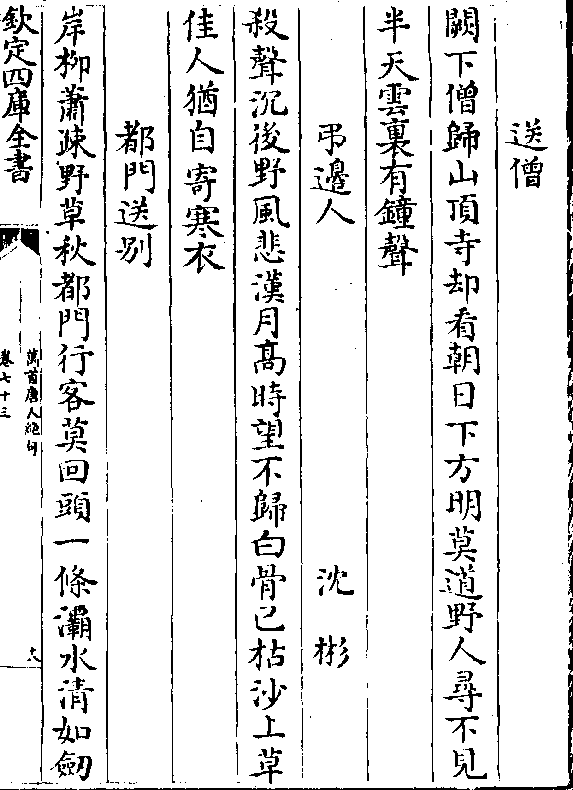 送僧
闕下僧歸山頂寺却看朝日下方明莫道野人尋不見
半天雲裏有鐘聲
弔邊人 沈彬
殺聲沉後野風悲漢月髙時望不歸白骨已枯沙上草
佳人猶自寄寒衣
都門送别
岸柳蕭疎野草秋都門行客莫回頭一條灞水清如劒
欽定四庫全書
萬首唐人絶句
卷七十三
十八